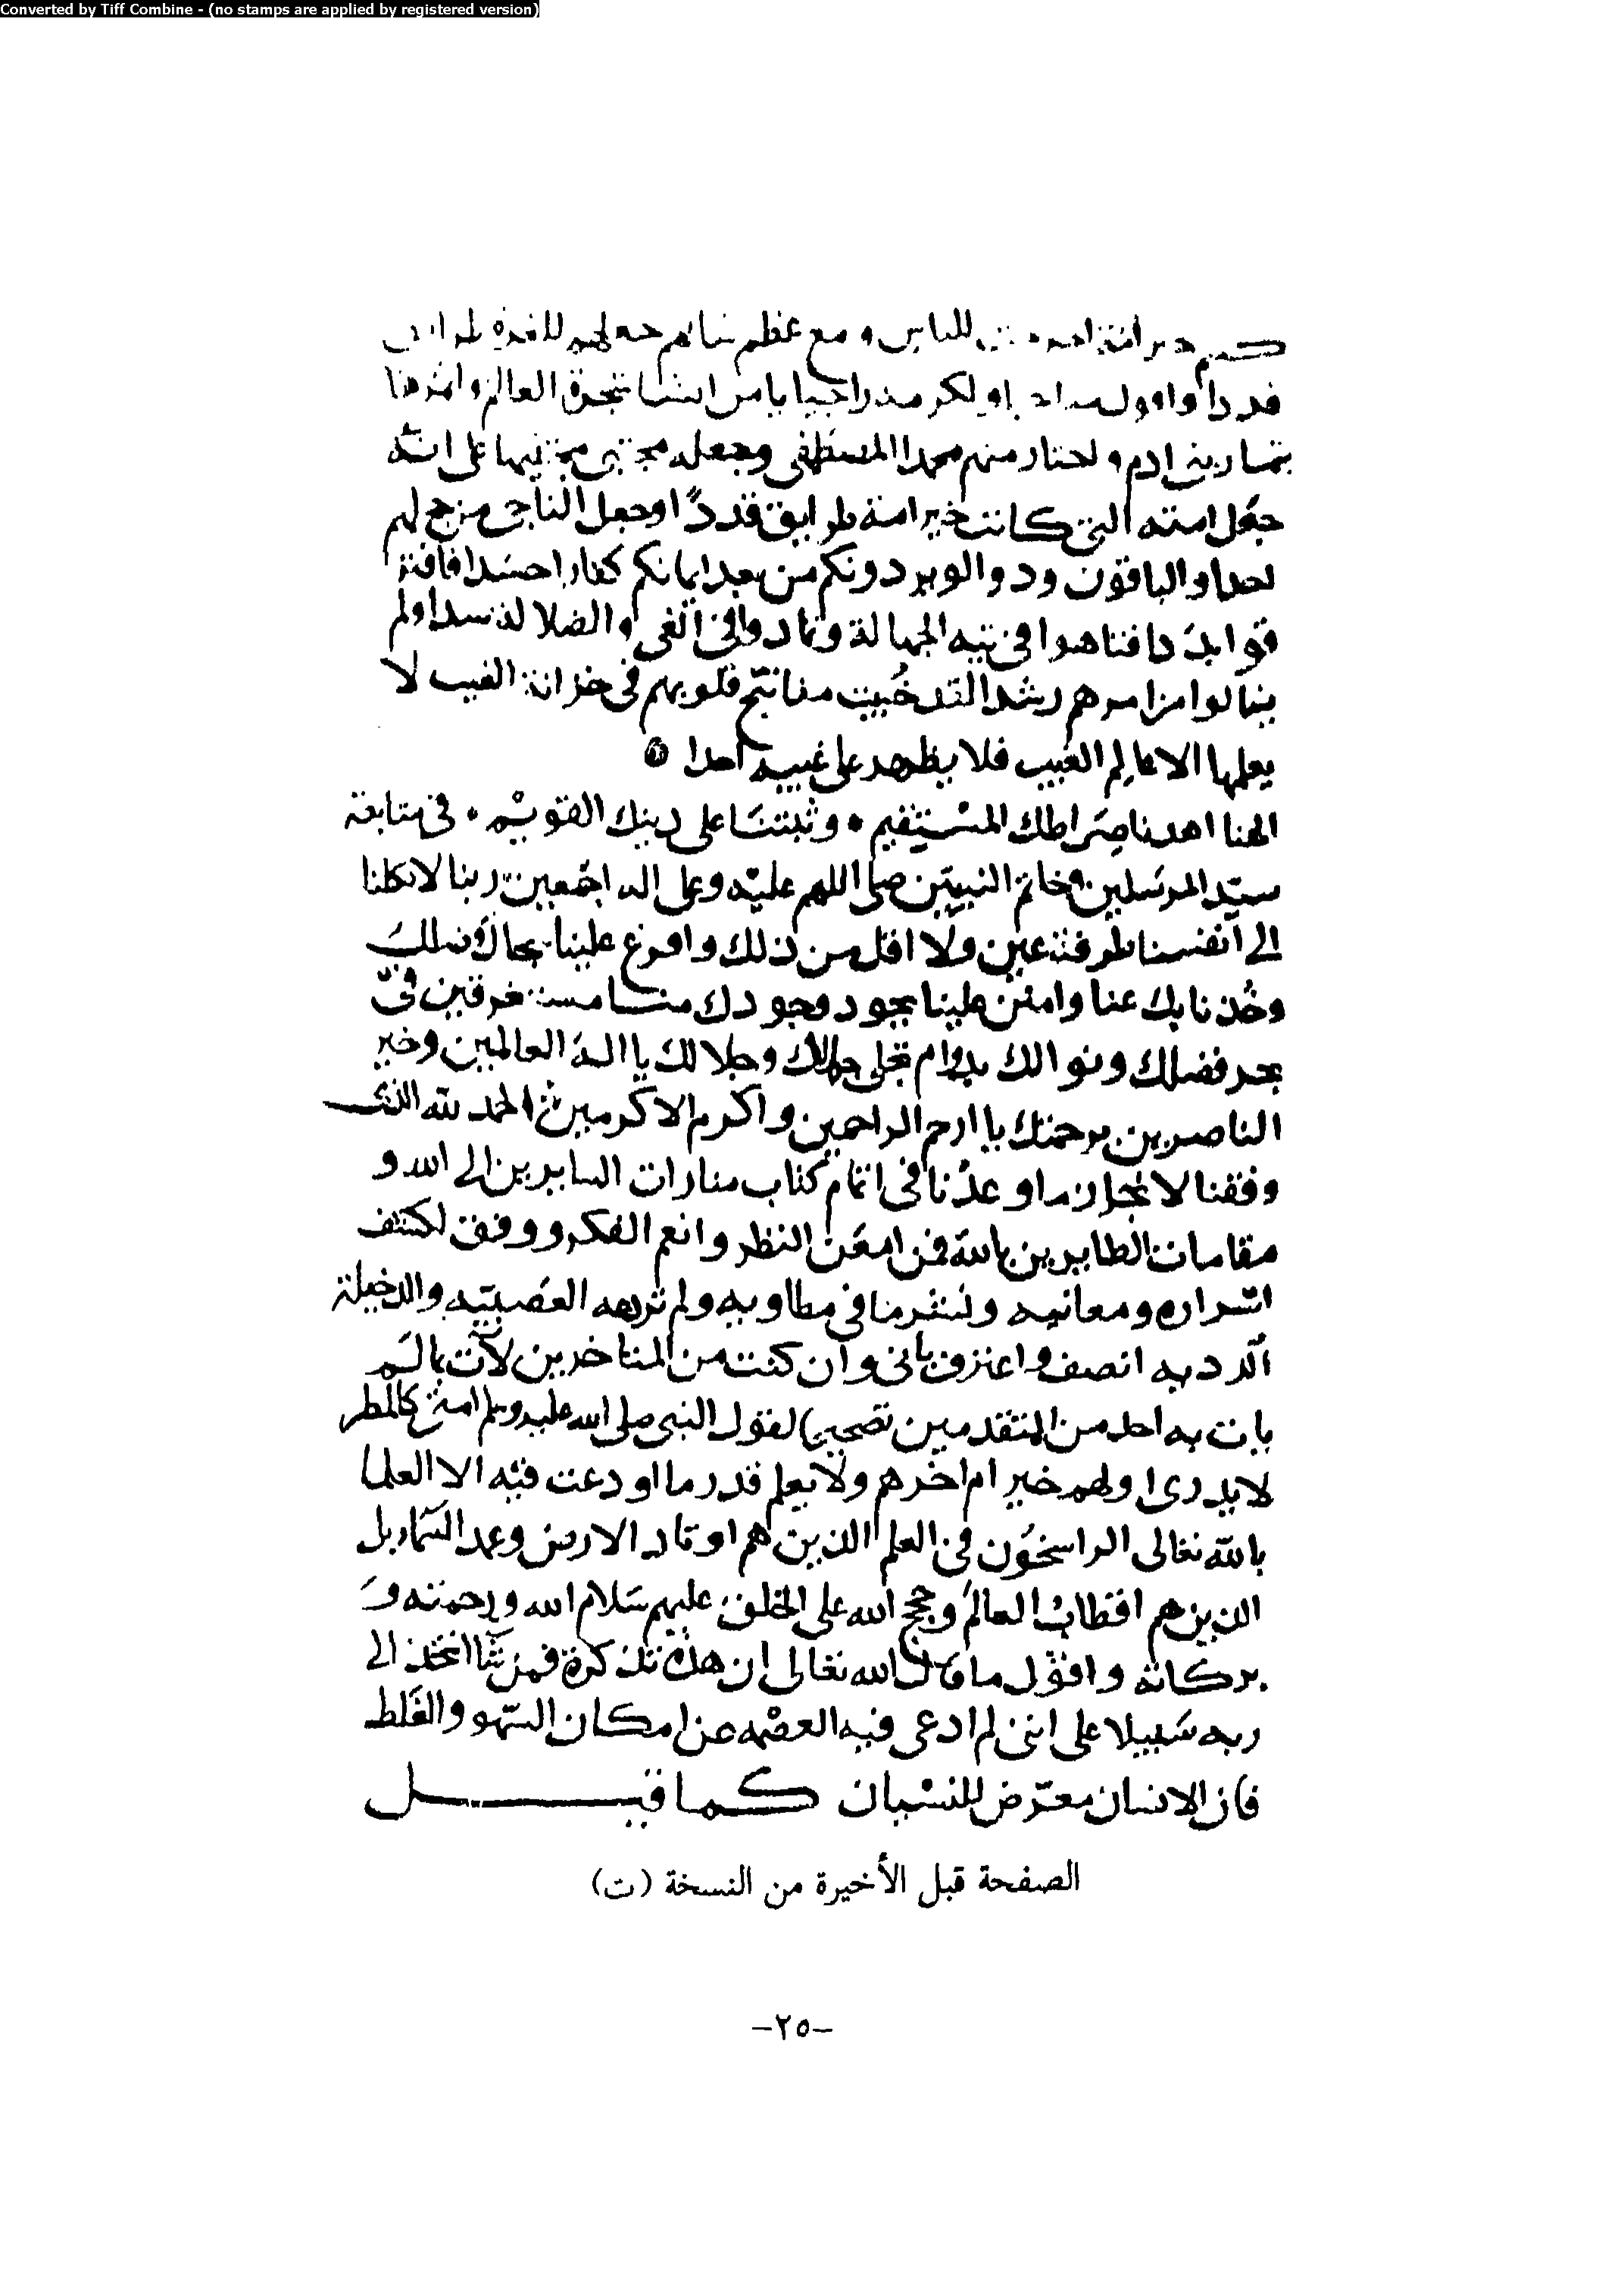 Converted by Tiff Combine - (no stamps are applied by registered version)
للناس و مع عظم
العالم
ادم و منهم محمدا المصطفى وجعله مجتبى على انه
جعل امته التى كانت خير امة طرايق قددا وجعل الناجى
والباقون ودوا لو يردونكم من بعد ايمانكم كفارا حسدا فافتر
قوا ابدا فتاهوا فى تيه الجهالة وتمادوا فى الغى والضلالة سدا ولم
ينالوا من امرهم رشدا لقد خبيت مفاتيح قلوبهم فى خزانة الغيب لا
يعلمها الا عالم الغيب فلا يظهر على غيبه احدا
الهنا اهدنا صراطك المستقيم • وثبتنا على دينك القويم • فى متابعة
سيد المرسلين وخاتم النبيين صلى اللهم عليه وعلى اله اجمعين ربنا لا تكلنا
الى انفسنا طرفة عين ولا اقل من ذلك وافرغ علينا سجال فضلك
وخذنا بك عنا وامنن علينا بجود وجودك مستغرقين فى
بحر فضلك ونوالك بدوام تجلى جمالك وجلالك يا اله العالمين وخير
الناصرين برحمتك يا ارحم الراحمين واكرم الاكرمين ثم الحمد لله الذى
وفقنا لانجاز ما وعدنا فى اتمام كتاب منارات السايرين الى الله و
مقامات الطايرين بالله فمن امعن النظر وانعم الفكر ووفق لكشف
اسراره ومعانيه ونشر ما فى مطاويه ولم ترهه العصبية والدخيلة
الردية انصف واعترف بانى وان كنت من المتاخرين لآت بما لم
يات به احد من المتقدمين تصحيحا لقول النبى صلى الله عليه وسلم امتى كالمطر
لا يدرى اولهم خير ام اخرهم ولا يعلم قدر ما اودعت فيه الا العلما
بالله تعالى الراسخون فى العلم الذين هم اوتاد الارض وعمد السما بل
الذين هم اقطاب العالم وحجج الله على الخلق عليهم سلام الله ورحمته و
بركاته واقول ما قال الله تعالى ان هذه تذكرة فمن شا اتخذ الى
ربه سبيلا على اننى لم ادعى فيه العصمه عن امكان السهو والغلط
فان الانسان معرض للنسيان كما قيل
الصفحة قبل الأخيرة من النسخة (ت)
-٢٥-